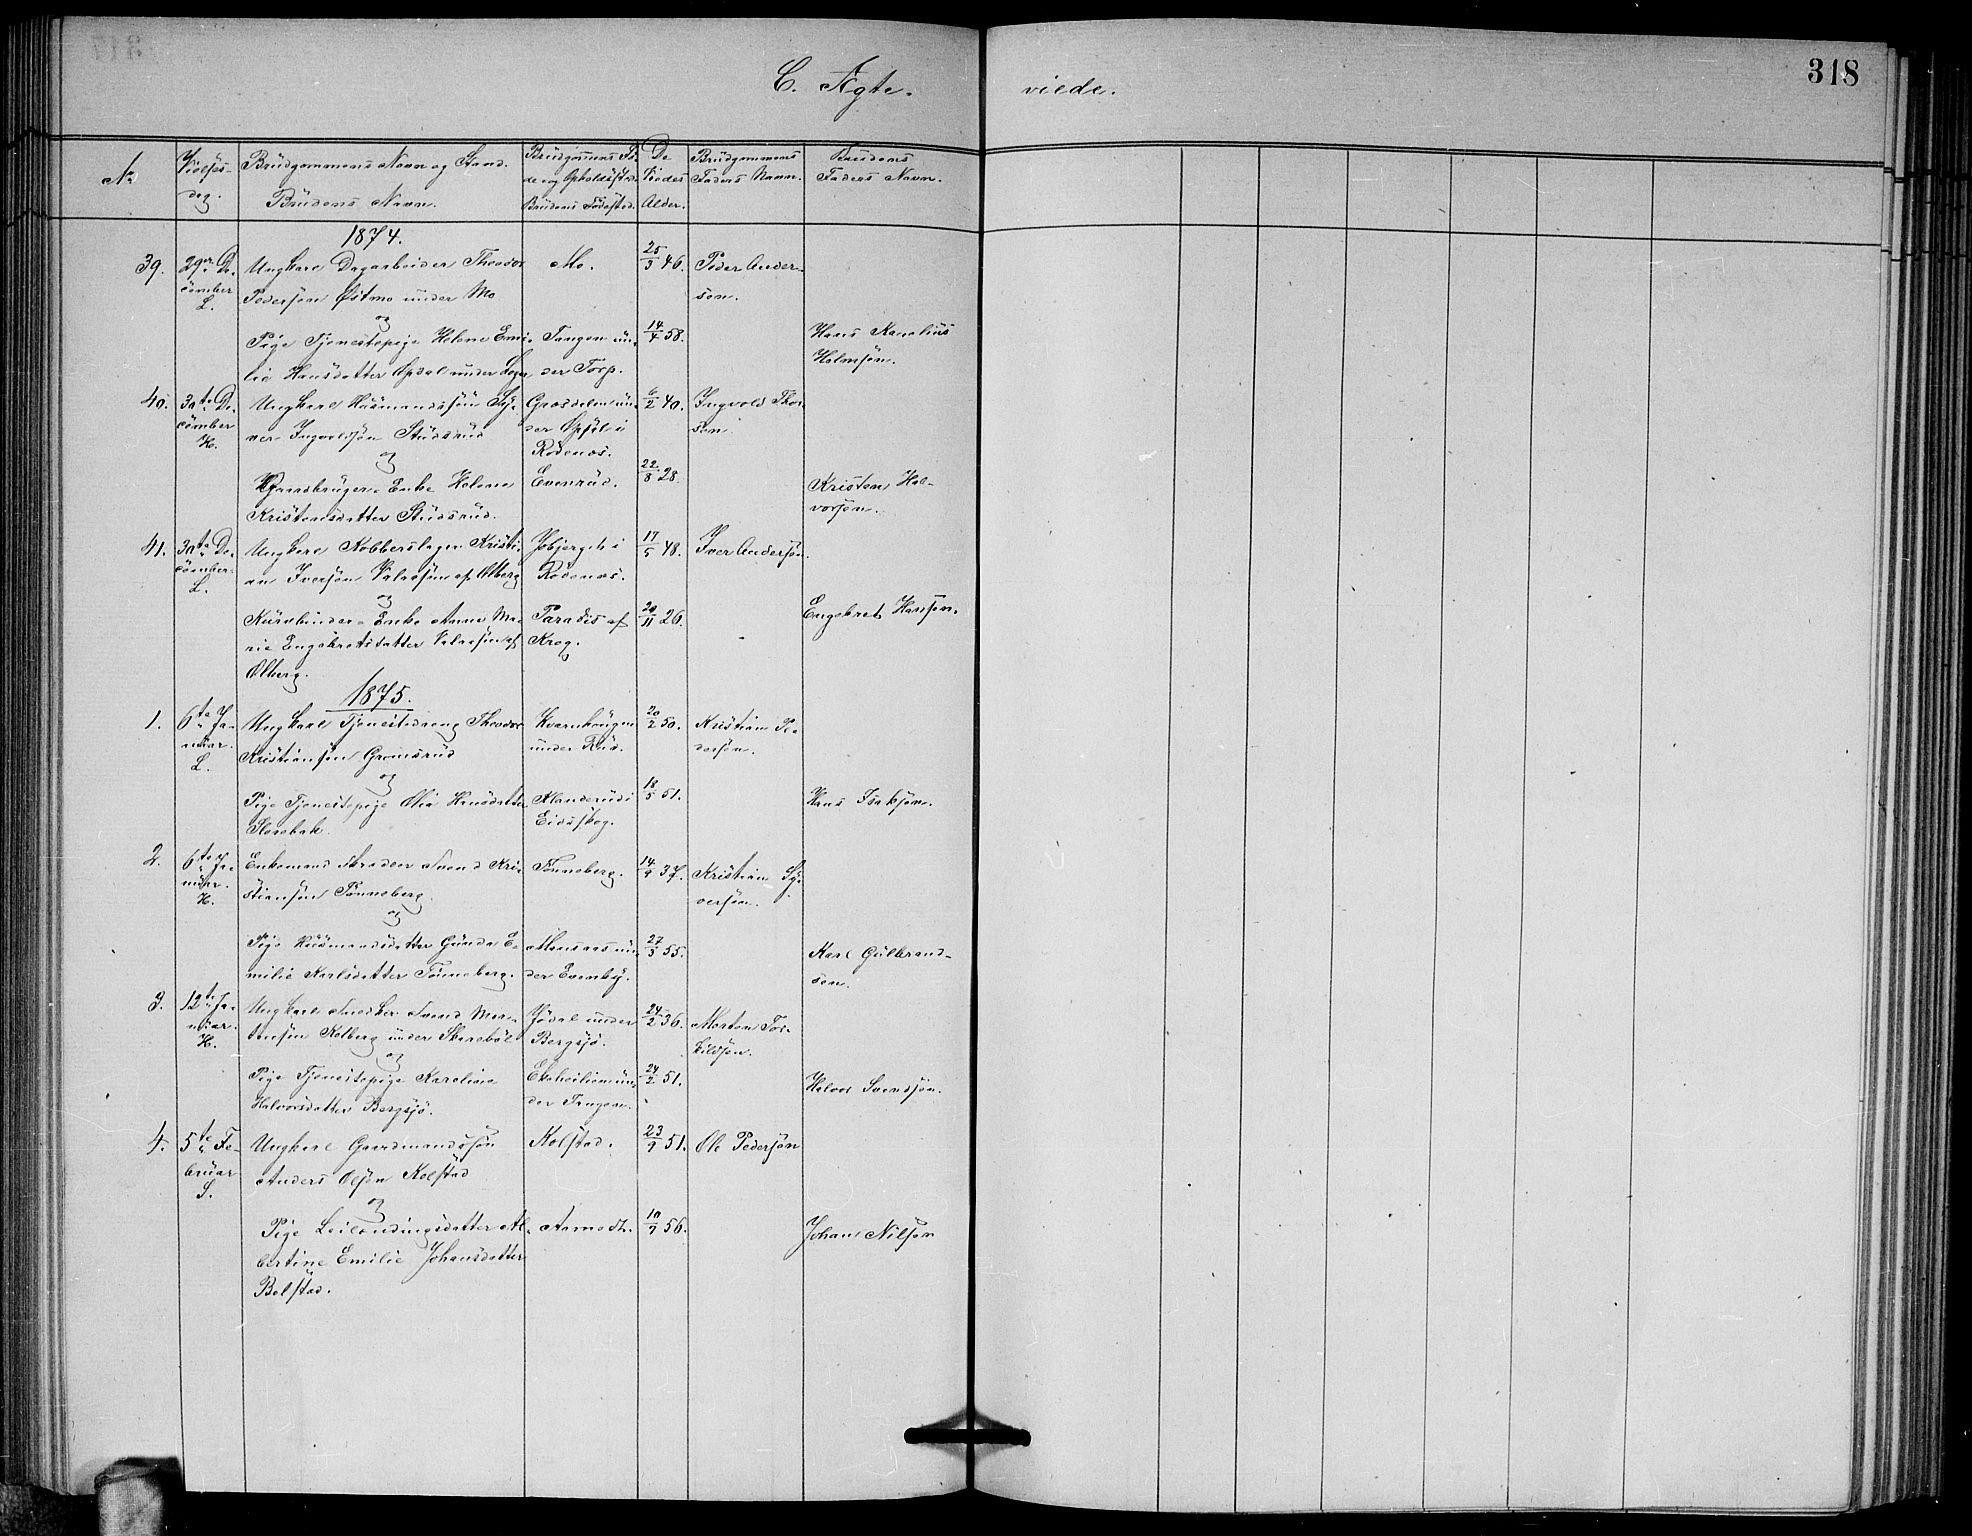 318
C. Ægte- viede.
No
Vielses-
dag.
Brudgommens Navn og Stand.
Brudens Navn.
Brudgommens Fø-
de og Opholdssted.
Brudens Fødested.
De
Viedes
Alder.
Brudgommens
Faders Navn.
Brudens
Faders Navn.
1874.
39.
29de De-
cember
L.
Ungkarl Dagarbeider Theodor
Pedersøn Østmo under Mo
Mo.
25/3 46.
Peder Ander-
søn.
og
Pige Tjenestepige Helene Emi-
lie Hansdatter Opdal under
Tangen un-
der Torp.
14/4 58.
Hans Kanelius
Holmsøn.
40.
30te De-
cember
H.
Ungkarl Husmandssøn Sy-
ver Ingvoldsøn Studsrud
Grosdalen un-
der Opsal i
Rødenæs.
6/2 40.
Ingvold Thor-
søn.
og
Gaardbruger-Enke Helene
Kristensdatter Studsrud.
Evenrud.
22/8 28.
Kristen Hal-
vorsøn.
41.
30te De-
cember.
L.
Ungkarl Kobberslager Kristi-
an Iversøn Valaasen af Olberg
i
Rødenæs.
17/5 48.
Iver Andersøn.
og
Kurvbinder-Enke Anne Ma-
rie Engebretsdatter Valaasen af
Olberg.
Paradis af
Krog.
20/11 26.
Engebret Hansøn.
1875.
1.
6te Ja-
nuar.
L.
Ungkarl Tjenestedreng Theodor
Kristiansøn Gromsrud
Kvernhougen
under Rud.
20/2 50.
Kristian Pe-
dersøn.
og
Pige Tjenestepige Olia Hansdatter
Slorebak.
i
Eidsskog.
18/5 51.
Hans Isaksøn.
2.
6te Ja-
nuar.
H.
Enkemand Skrædder Svend Kri-
stiansøn Tønneberg.
Tønneberg.
14/9 37.
Kristian Sy-
versøn.
og
Pige Husmandsdatter Gunda E-
milie Karlsdatter Tønneberg.
Monsaas un-
der Evenby.
27/3 55.
Karl Gulbrand-
søn.
3.
12te Ja-
nuar.
H.
Ungkarl Snedker Svend Mor-
tensøn Kolberg under Skarebøl
Jødal under
Bergsjø.
24/2 36.
Morten Tor-
kildsøn.
og
Pige Tjenestepige Karoline
Halvorsdatter Bergsjø.
Ekeheilien un-
der Tangen.
24/2 51.
Halvor Svendsøn.
4.
5te Fe-
bruar
S.
Ungkarl Gaardmandssøn
Anders Olsøn Kolstad
Kolstad.
23/9 51.
Ole Pedersøn
og
Pige Leilændingsdatter Al-
bertine Emilie Johansdatter
Bolstad.
Aamodt.
10/7 56.
Johan Nilsøn